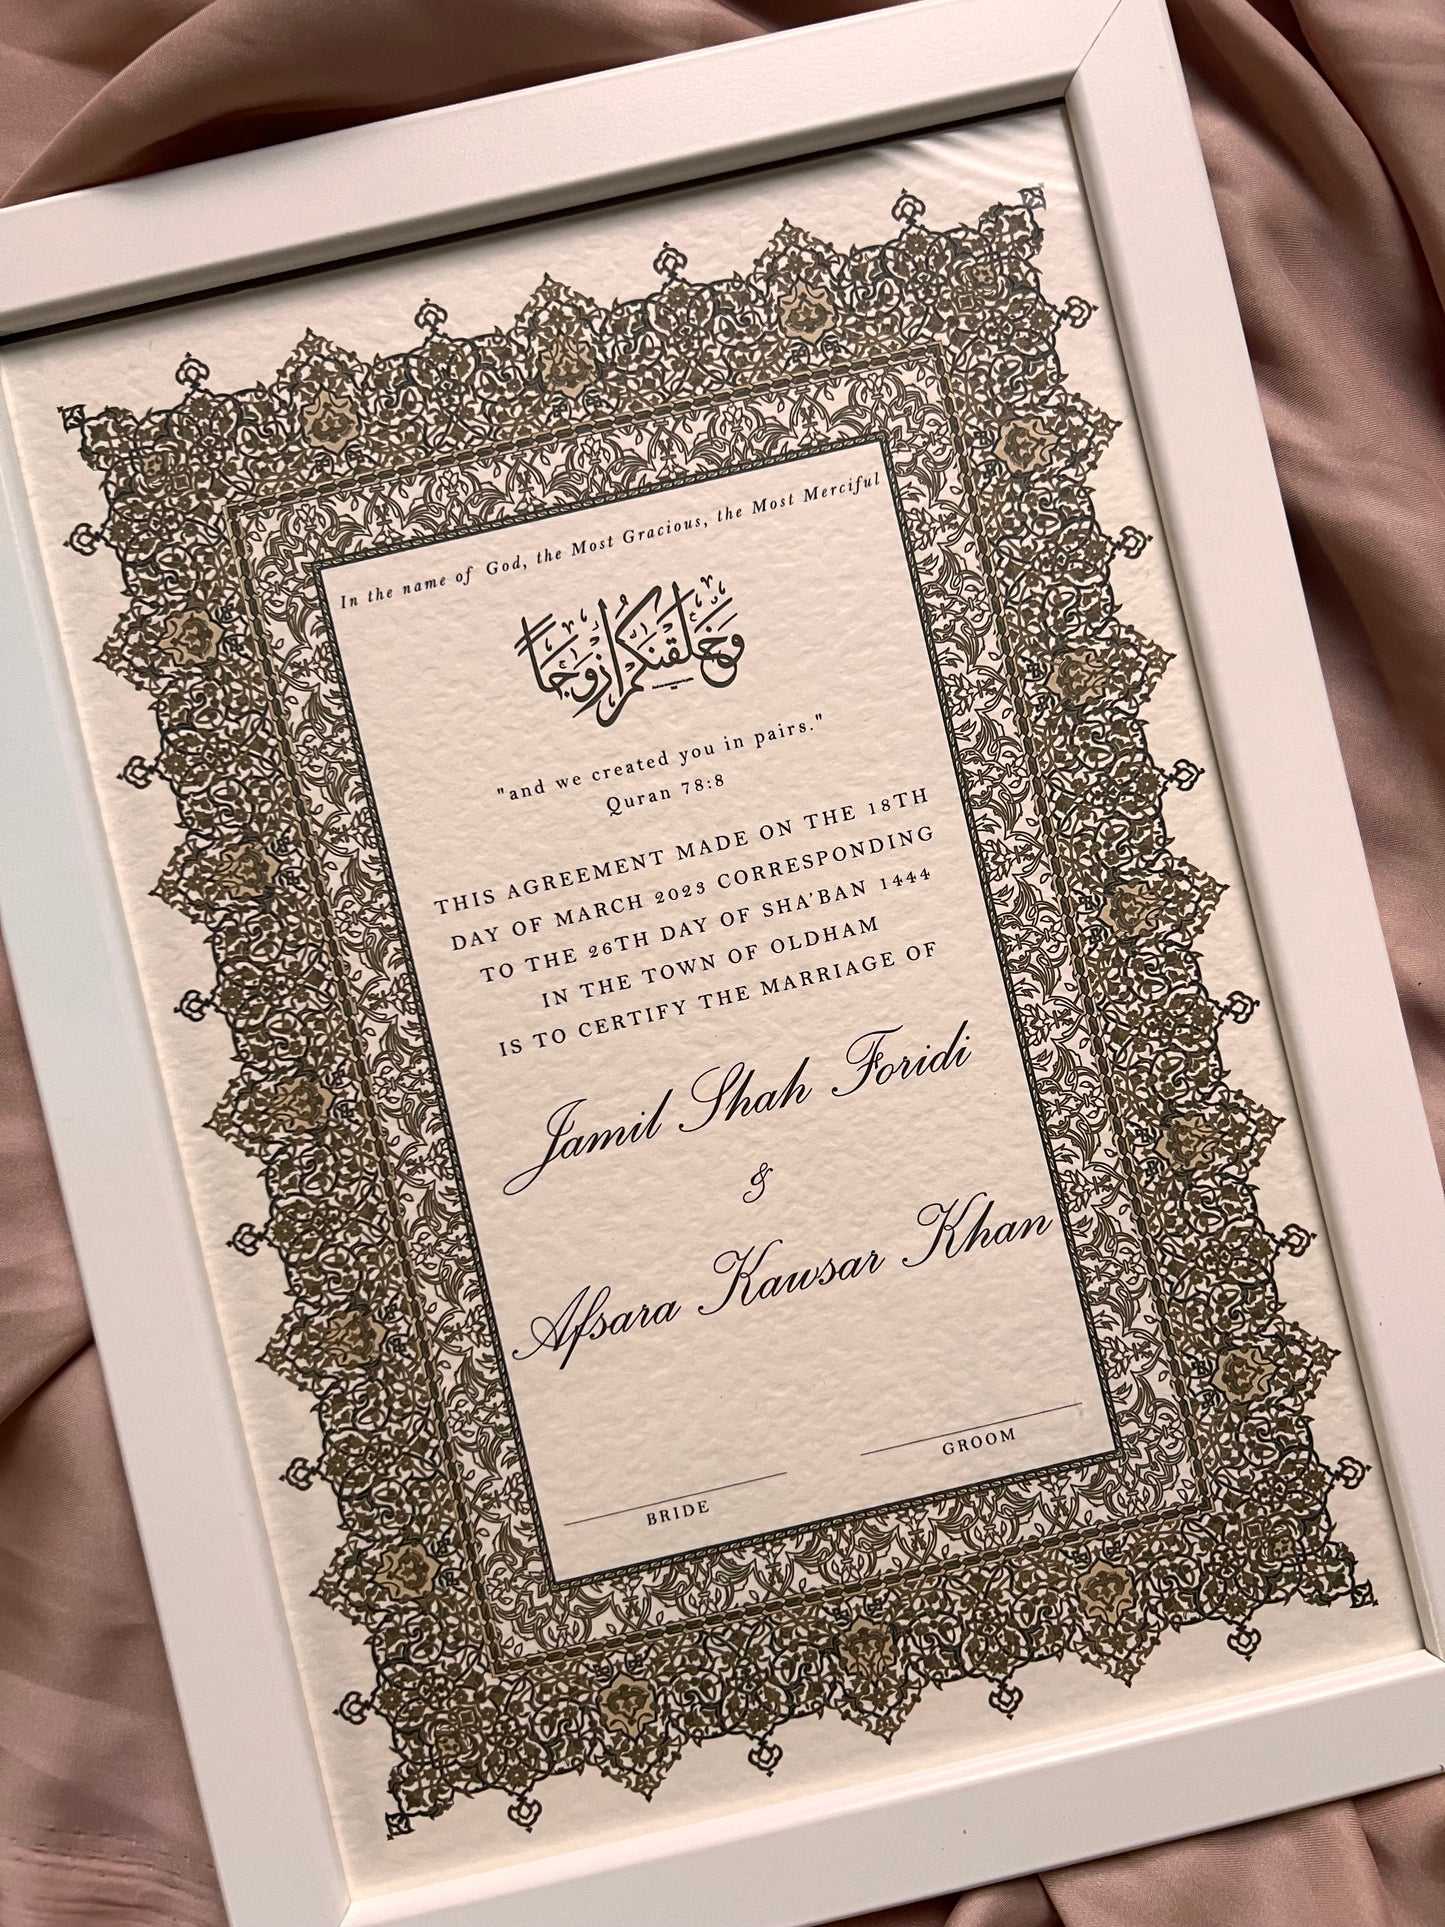 In the name of God, the Most Gracious, the Most Merciful
وَخَلَقْنَٰكُمْ أَزْوَٰجًا
"and we created you in pairs."
Quran 78:8
THIS AGREEMENT MADE ON THE 18TH
DAY OF MARCH 2023 CORRESPONDING
TO THE 26TH DAY OF SHA'BAN 1444
IN THE TOWN OF OLDHAM
IS TO CERTIFY THE MARRIAGE OF
Jamil Shah Foridi
&
Afsara Kawsar Khan
BRIDE GROOM